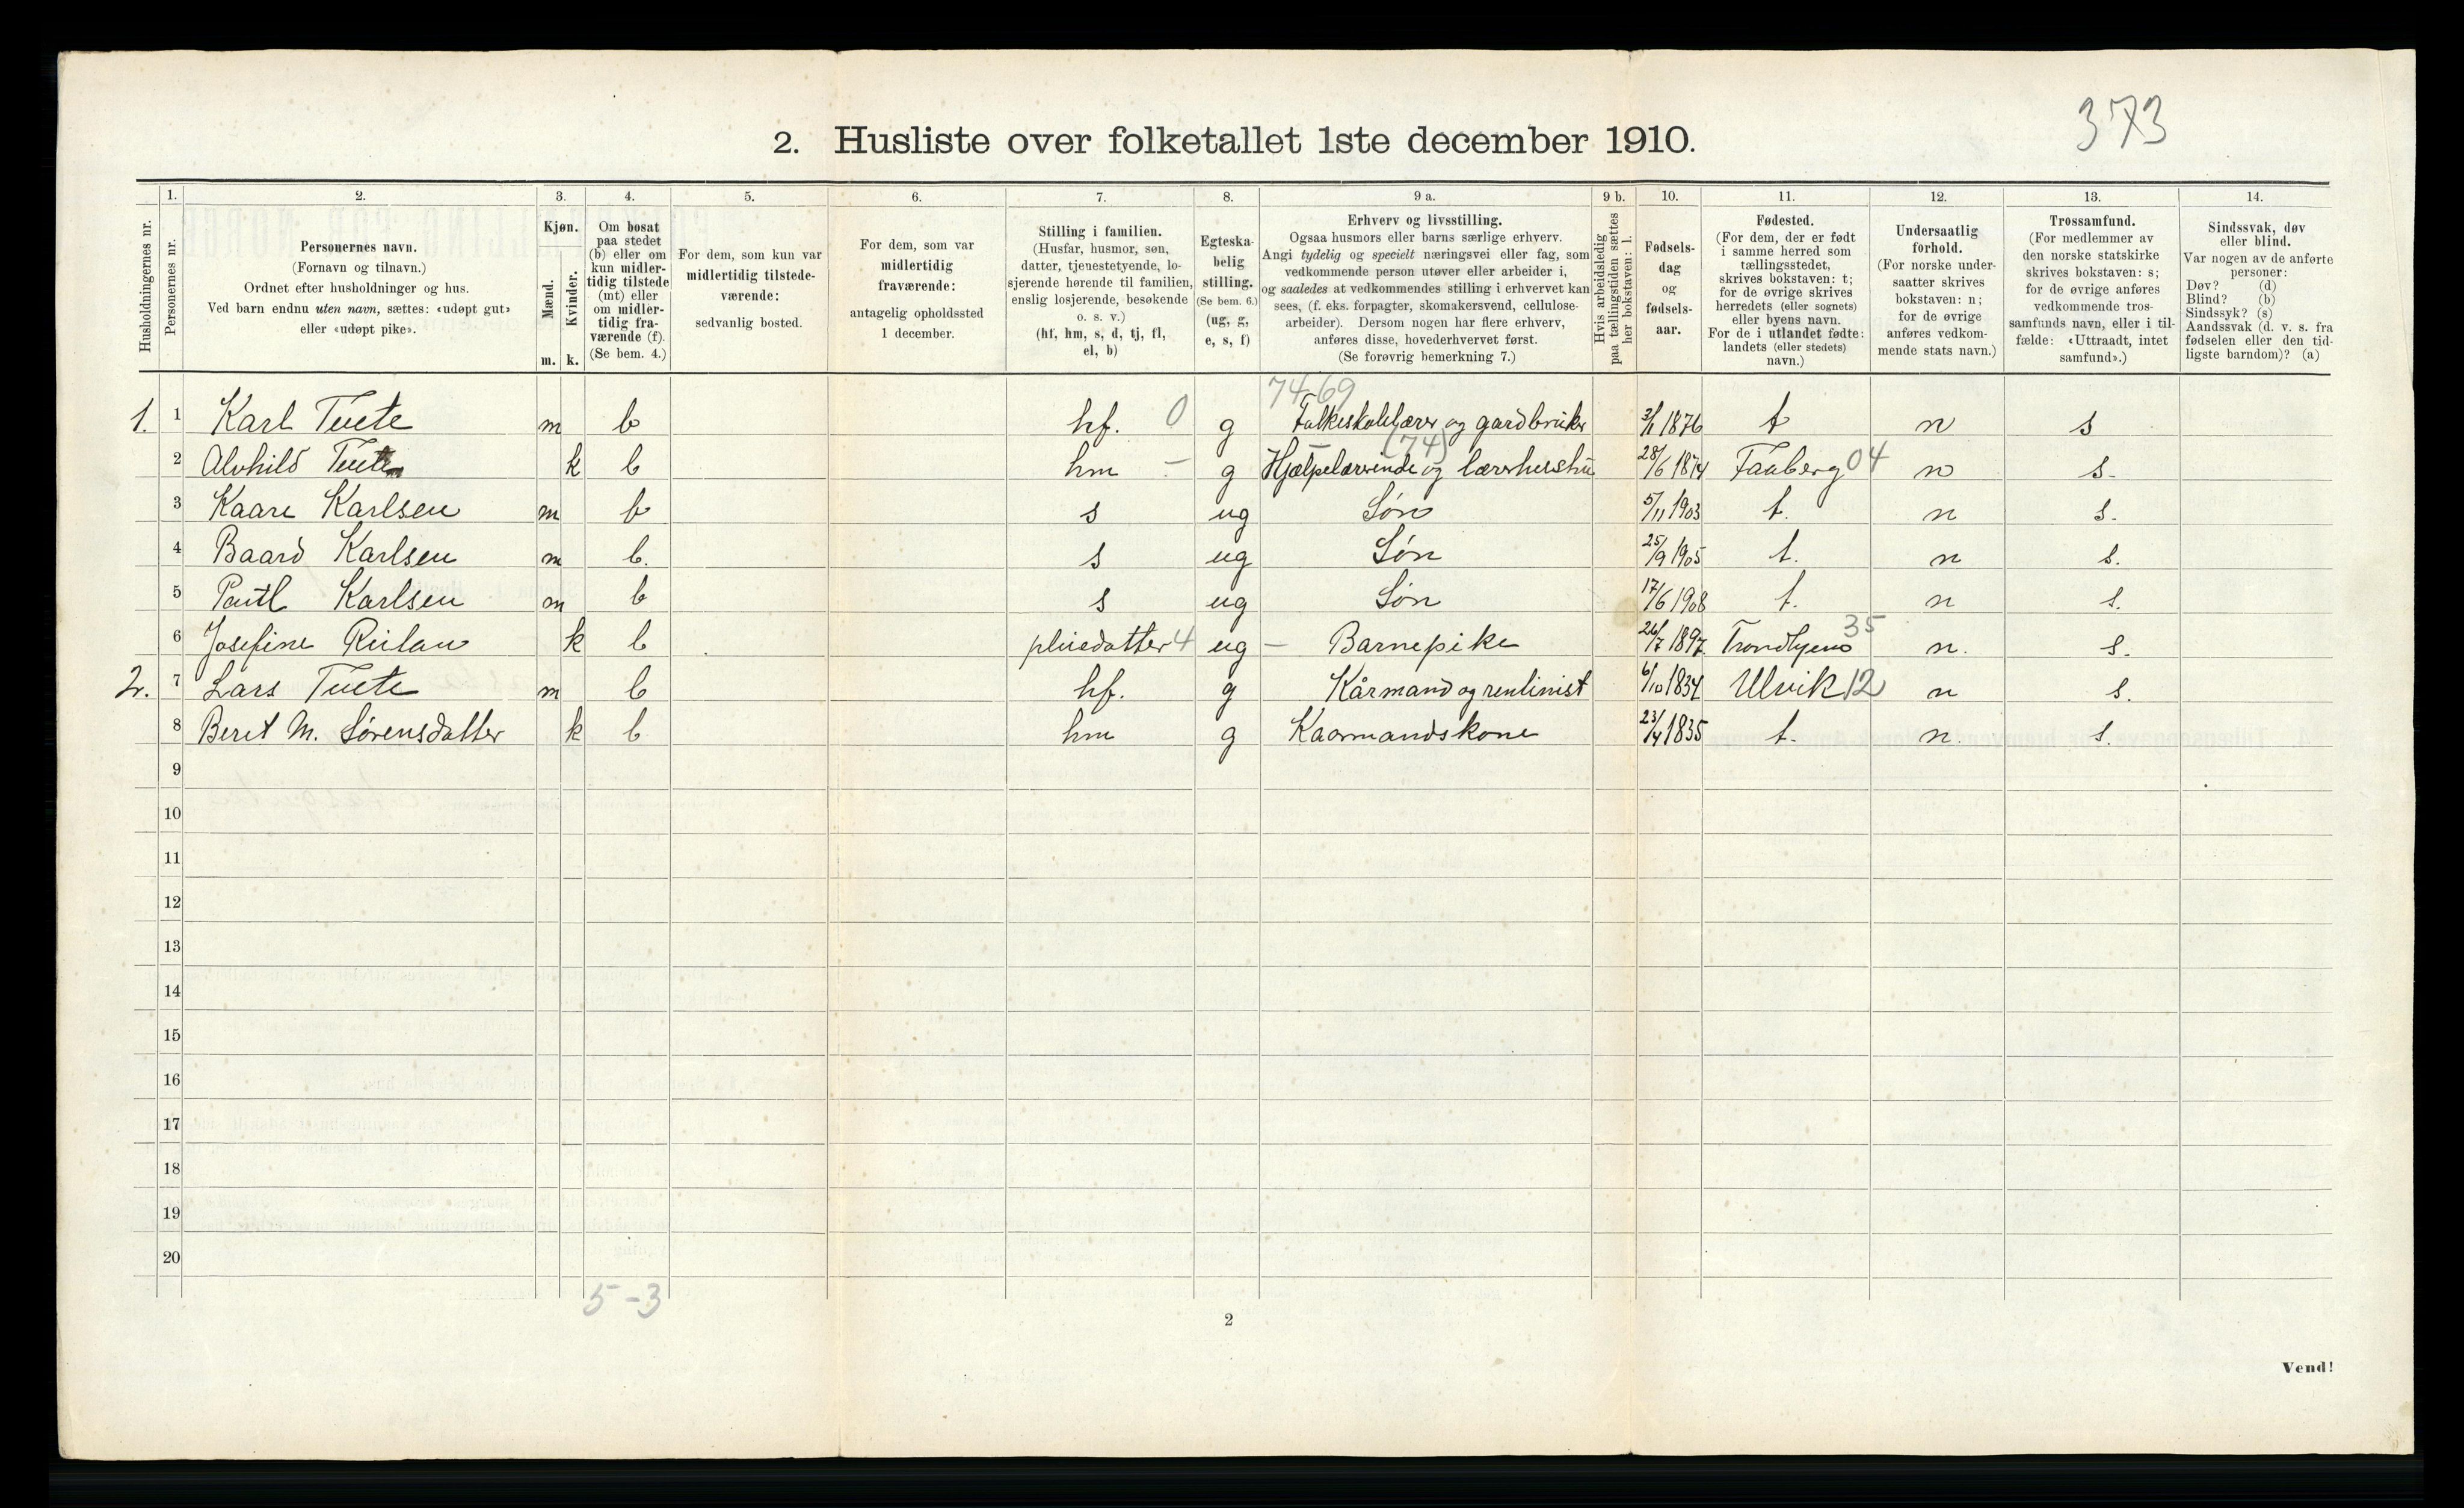 373
2. Husliste over folketallet 1ste december 1910.
Husholdningernes nr.
1.
Personernes nr.
2.
Personernes navn.
(Fornavn og tilnavn.)
Ordnet efter husholdninger og hus.
Ved barn endnu uten navn, sættes: «udøpt gut»
eller «udøpt pike».
3.
Kjøn.
Mænd.
Kvinder.
m. k.
4.
Om bosat
paa stedet
(b) eller om
kun midler-
tidig tilstede
(mt) eller
om midler-
tidig fra-
værende (f).
(Se bem. 4.)
5.
For dem, som kun var
midlertidig tilstede-
værende:
sedvanlig bosted.
6.
For dem, som var
midlertidig
fraværende:
antagelig opholdssted
1 december.
7.
Stilling i familien.
(Husfar, husmor, søn,
datter, tjenestetyende, lo-
sjerende hørende til familien,
enslig losjerende, besøkende
o. s. v.)
(hf, hm, s, d, tj, fl,
el, b)
8.
Egteska-
belig
stilling.
(Se bem. 6.)
(ug, g,
e, s, f)
9 a.
Erhverv og livsstilling.
Ogsaa husmors eller barns særlige erhverv.
Angi tydelig og specielt næringsvei eller fag, som
vedkommende person utøver eller arbeider i,
og saaledes at vedkommendes stilling i erhvervet kan
sees, (f. eks. forpagter, skomakersvend, cellulose-
arbeider). Dersom nogen har flere erhverv,
anføres disse, hovederhvervet først.
(Se forøvrig bemerkning 7.)
9 b.
Hvis arbeidsledig
paa tællingstiden sættes
her bokstaven: l.
10.
Fødsels-
dag
og
fødsels-
aar.
11.
Fødested.
(For dem, der er født
i samme herred som
tællingsstedet,
skrives bokstaven: t;
for de øvrige skrives
herredets (eller sognets)
eller byens navn.
For de i utlandet fødte:
landets (eller stedets)
navn.)
12.
Undersaatlig
forhold.
(For norske under-
saatter skrives
bokstaven: n;
for de øvrige
anføres vedkom-
mende stats navn.)
13.
Trossamfund.
(For medlemmer av
den norske statskirke
skrives bokstaven: s;
for de øvrige anføres
vedkommende tros-
samfunds navn, eller i til-
fælde: «Uttraadt, intet
samfund».)
14.
Sindssvak, døv
eller blind.
Var nogen av de anførte
personer:
Døv? (d)
Blind? (b)
Sindssyk? (s)
Aandssvak (d. v. s. fra
fødselen eller den tid-
ligste barndom)? (a)
74-69
1. 1 Karl Tuete m b hf. 0 g Folkeskolelærer og gardbruker 3/1 1876 t n s
(74)
2 Alvhild Tuete k b hm - g Hjælpelærerinde og 28/6 1874 Faaberg 04 n s.
3 Kaare Karlsen m b s ug Søn 5/11 1903 t. n s.
4 Baard Karlsen m b. s ug Søn 25/9 1905 t. n s.
5 Karlsen m b s ug Søn 17/6 1908 t. n s.
35
6 Josefine k b pleiedatter 4 ug - Barnepike 26/7 1897 Trondhjem n. s.
2. 7 Lars Tuete m b hf. g Kårmand og 6/10 1834 Ulvik 12 n s.
8 Beret M. Sørensdatter k b hm g Kaarmandskone 23/4 1835 t. n. s.
9
10
11
12
13
14
15
16
17
18
19
20
5-3
2
Vend!